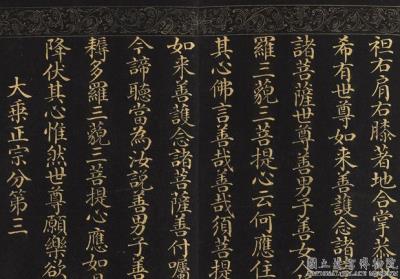 袒右肩右膝著地合掌恭
希有世尊如來善護念諸
諸菩薩世尊善男子善女
羅三藐三菩提心云何應住
其心佛言善哉善哉須菩提
如來善護念諸菩薩善付囑
今諦聽當為汝說善男子善
耨多羅三藐三菩提心應如
降伏其心惟然世尊願樂欲
大乘正宗分第三
國立故宮博物院